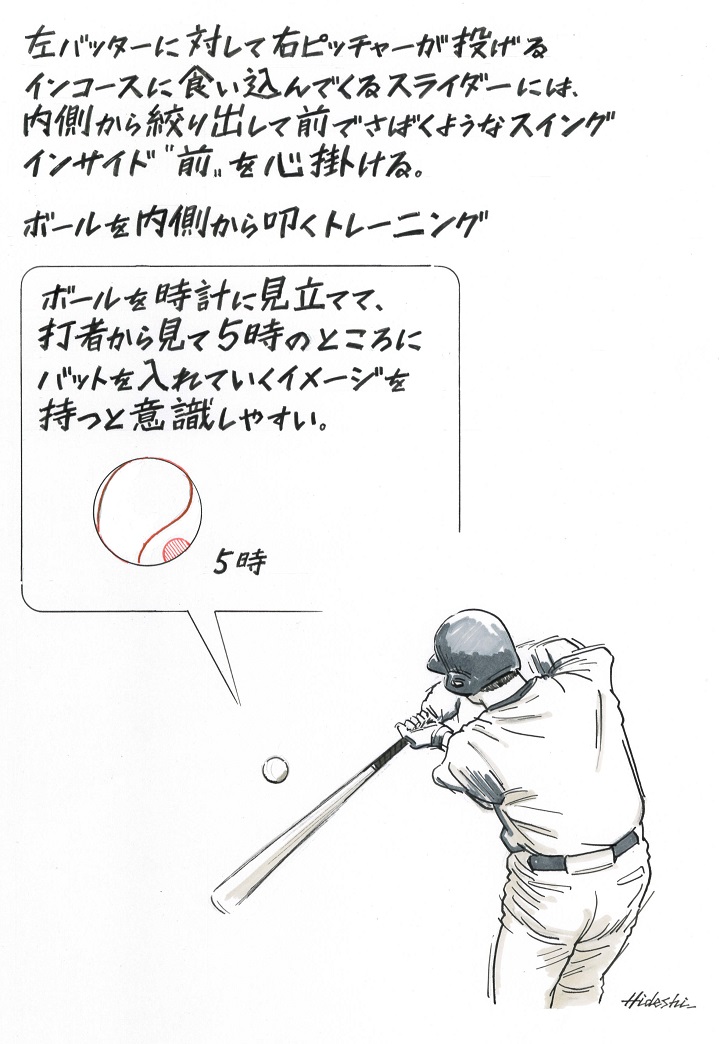 左バッターに対して右ピッチャーが投げる
インコースに食い込んでくるスライダーには、
内側から絞り出して前でさばくようなスイング
インサイド〝前〟を心掛ける。
ボールを内側から叩くトレーニング
ボールを時計に見立てて、
打者から見て5時のところに
バットを入れていくイメージを
持つと意識しやすい。
5時
Hideshi